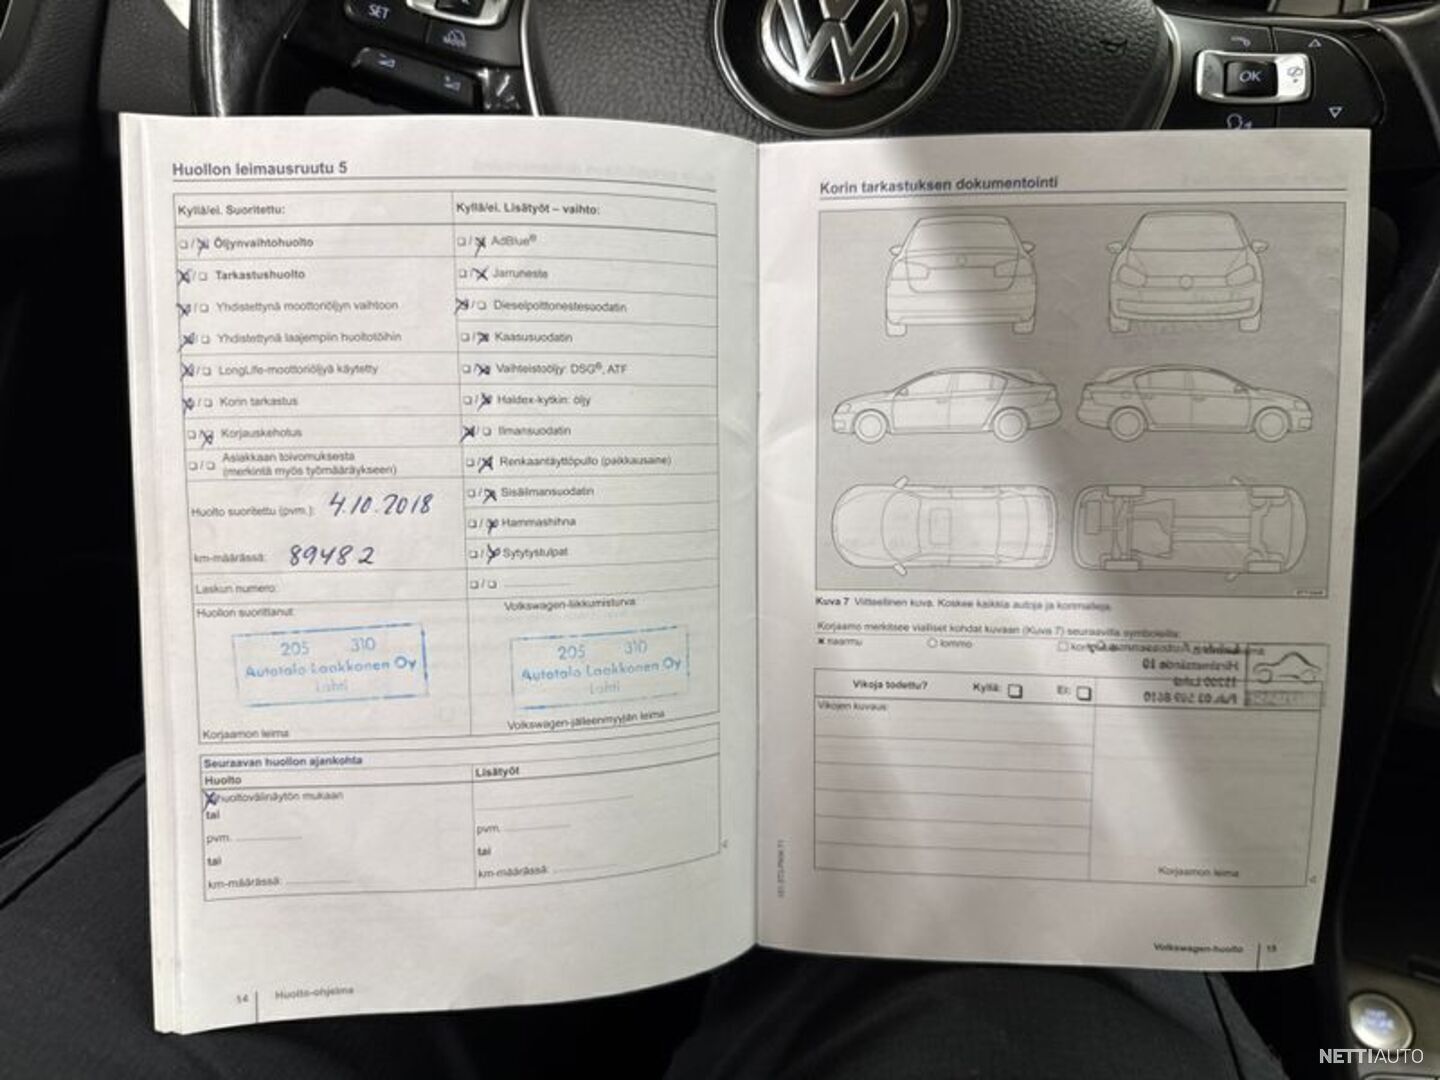 SET
OK
Huollon leimausruutu 5
Kyllä/ei. Suoritettu:
Kyllä/ei. Lisätyöt – vaihto:
Öljynvaihtohuolto
AdBlue®
Tarkastushuolto
Jarruneste
Yhdistettynä moottoriöljyn vaihtoon
Dieselpolttonestesuodatin
Yhdistettynä laajempiin huoltotöihin
Kaasusuodatin
LongLife-moottoriöljyä käytetty
Vaihteistoöljy: DSG®, ATF
Korin tarkastus
Haldex-kytkin: öljy
Korjauskehotus
Ilmansuodatin
Asiakkaan toivomuksesta
(merkintä myös työmääräykseen)
Renkaantäyttöpullo (paikkausaine)
Sisäilmansuodatin
Huolto suoritettu (pvm.): 4.10.2018
Hammashihna
km-määrässä: 89482
Sytytystulpat
Laskun numero:
Huollon suorittanut:
Volkswagen-liikkumisturva
205 310
Autotalo Laakkonen Oy
Lahti
205 310
Autotalo Laakkonen Oy
Lahti
Korjaamon leima
Volkswagen-jälleenmyyjän leima
Seuraavan huollon ajankohta
Huolto
Lisätyöt
huoltovälinäytön mukaan
tai
pvm.
pvm.
tai
tai
km-määrässä:
km-määrässä:
14 Huolto-ohjelma
Korin tarkastuksen dokumentointi
Kuva 7 Viitteellinen kuva. Koskee kaikkia autoja ja korimalleja.
Korjaamo merkitsee vialliset kohdat kuvaan (Kuva 7) seuraavilla symboleilla:
naarmu
lommo
Vikoja todettu? Kyllä: Ei:
Vikojen kuvaus:
Korjaamon leima
Volkswagen-huolto 15
NETTIAUTO